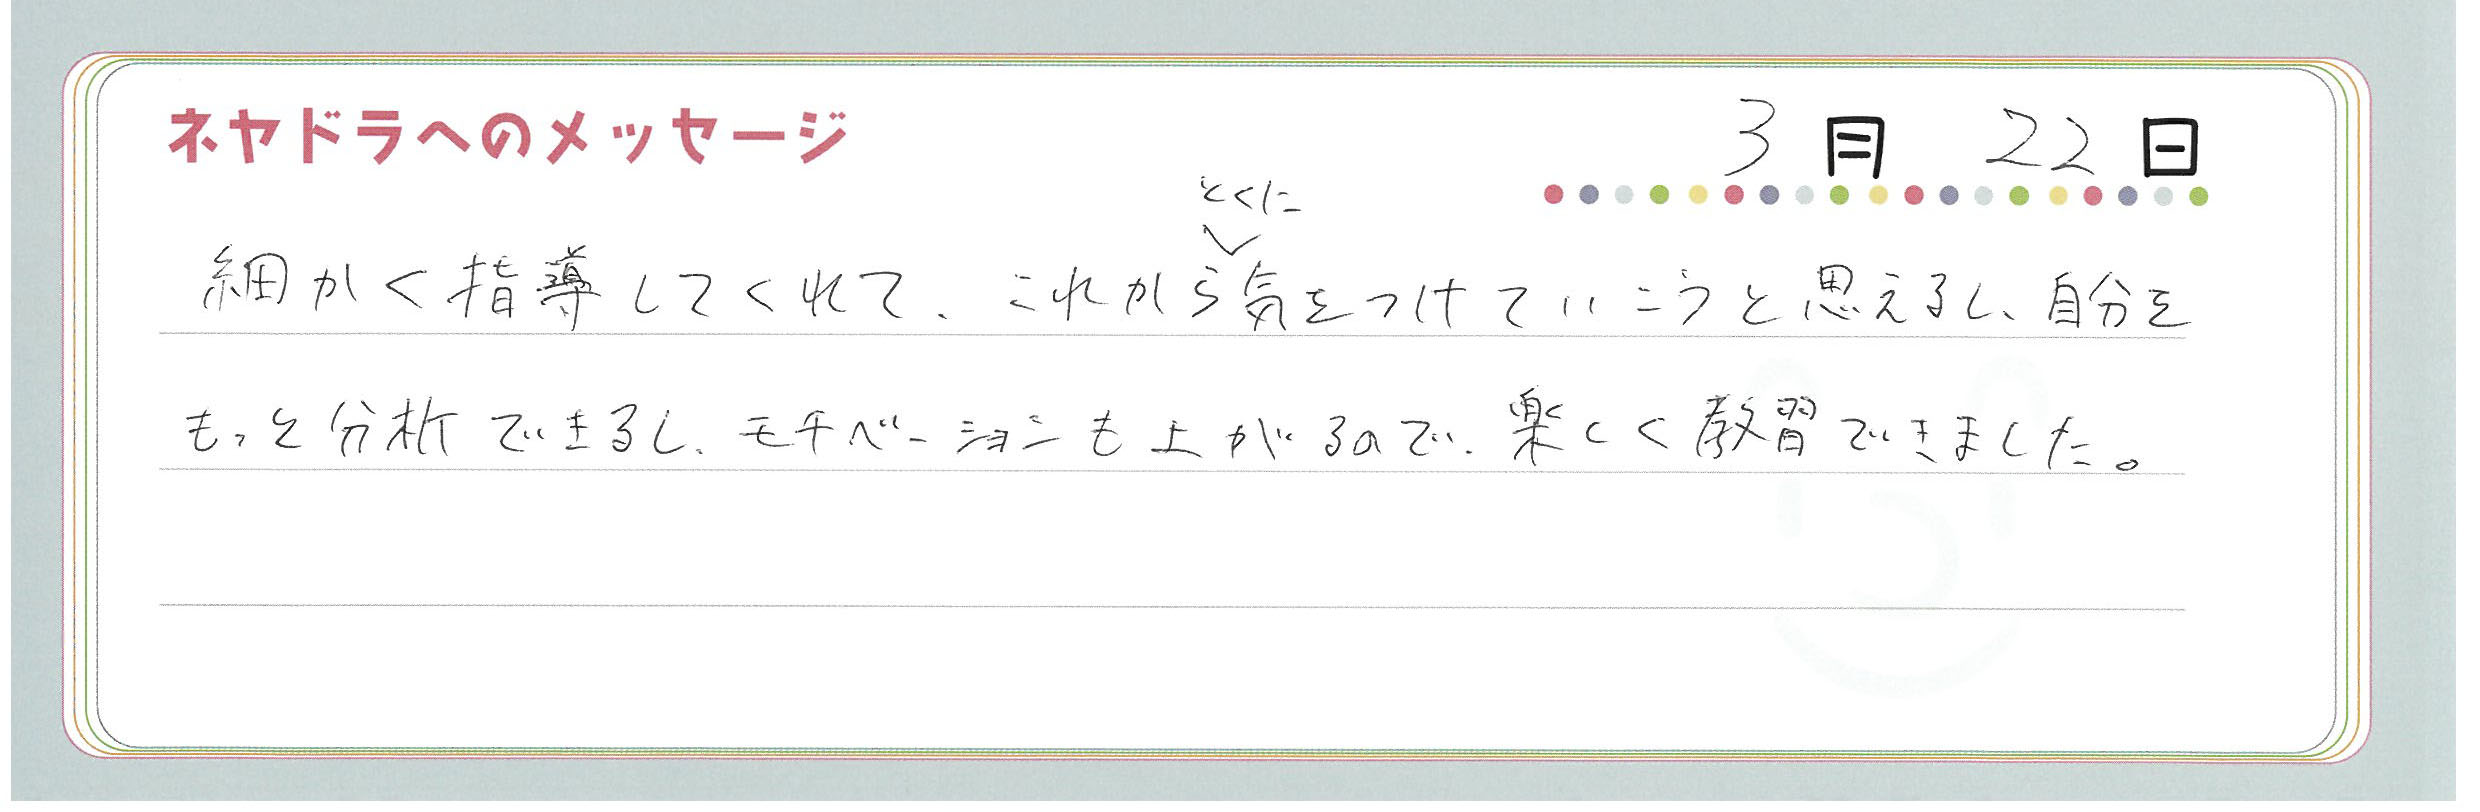 ネヤドラへのメッセージ
3月 22日
とくに
細かく指導してくれて、これから気をつけていこうと思えるし、自分を
もっと分析できるし、モチベーションも上がるので、楽しく教習できました。